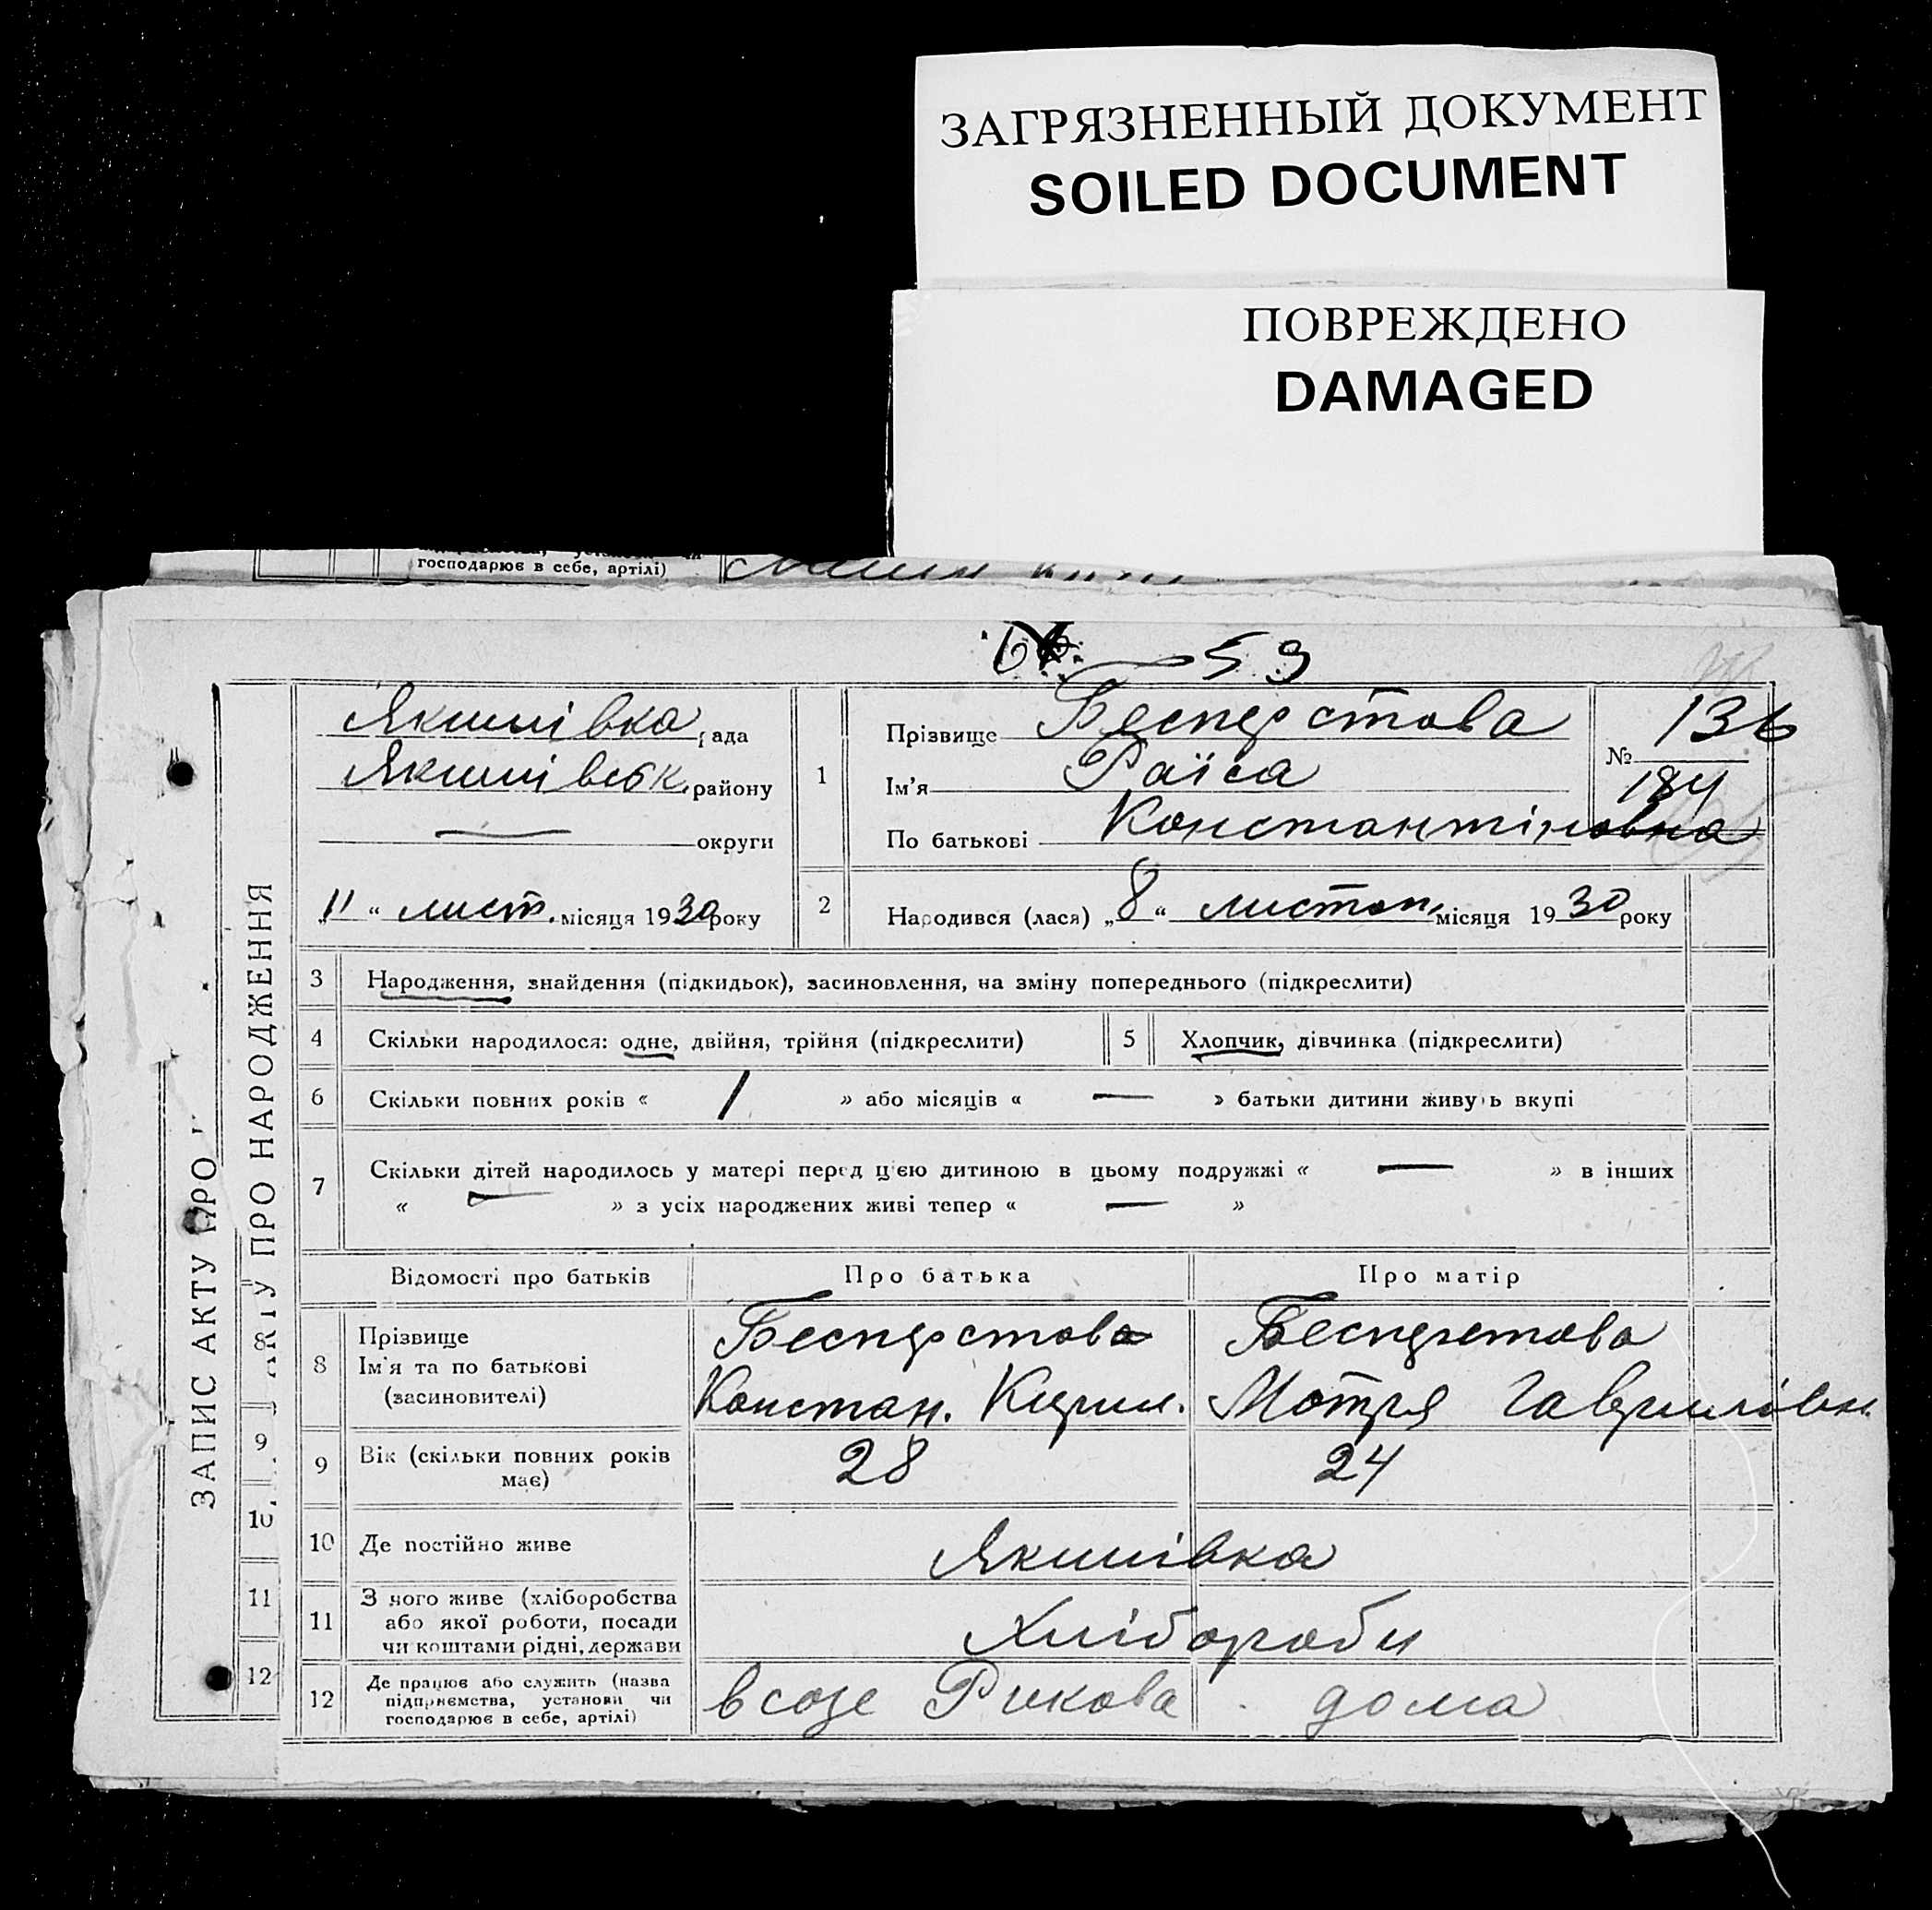 ЗАГРЯЗНЕННЫЙ ДОКУМЕНТ
SOILED DOCUMENT
ПОВРЕЖДЕНО
DAMAGED
господарює в себе, артілі)
53
ЗАПИС АКТУ ПРО
ПРО НАРОДЖЕННЯ
8
9
10
11
12
Якимівка рада
Якимівськ. району
округи
„11“ лист. місяця 1930 року
1
Прізвище Бесперстова
Ім'я Раїса
По батькові Константіновна
№ 136
184
2
Народився (лася) „8“ листоп. місяця 1930 року
3 Народження, знайдення (підкидьок), засиновлення, на зміну попереднього (підкреслити)
4 Скільки народилося: одне, двійня, трійня (підкреслити) 5 Хлопчик, дівчинка (підкреслити)
6 Скільки повних років « 1 » або місяців « — » батьки дитини живуть вкупі
7 Скільки дітей народилось у матері перед цією дитиною в цьому подружжі « — » в інших
« — » з усіх народжених живі тепер « — »
Відомості про батьків Про батька Про матір
8 Прізвище Бесперстова Бесперстова
Ім'я та по батькові
(засиновителі) Констан. Кирил. Мотря Гаврилівн.
9 Вік (скільки повних років
має) 28 24
10 Де постійно живе Якимівка
11 З чого живе (хліборобства
або якої роботи, посади
чи коштами рідні, держави Хлібороби
12 Де працює або служить (назва
підприємства, установи чи
господарює в себе, артілі) в созе Рикова дома